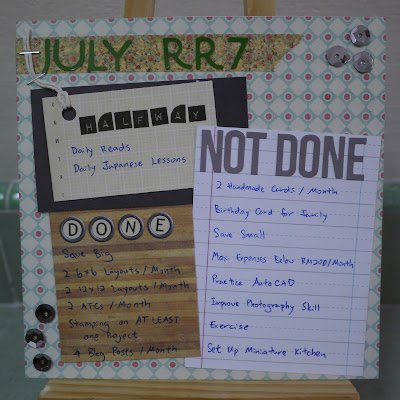 JULY RR7
HALFWAY
Daily Reads
Daily Japanese Lessons
NOT DONE
2 Handmade Cards / Month
Birthday Card for Family
Save Small
Max. Expenses Below RM200/Month
Practice AutoCAD
Improve Photography Skill
Exercise
Set Up Miniature Kitchen
DONE
Save Big
2 6x6 Layouts / Month
2 12x12 Layouts / Month
2 ATCs / Month
Stamping on AT LEAST
one Project
4 Blog Posts / Month